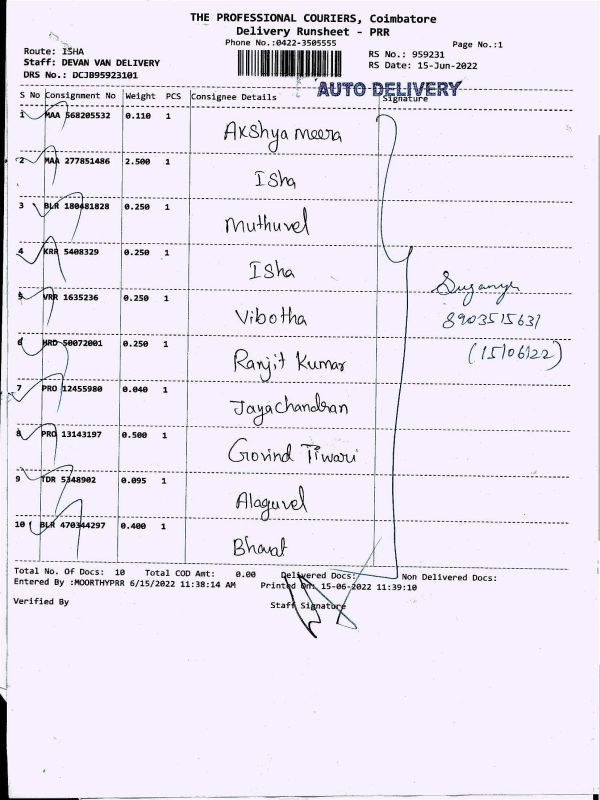 THE PROFESSIONAL COURIERS, Coimbatore
Delivery Runsheet - PRR
Phone No.:0422-3505555
Page No.:1
Route: ISHA
Staff: DEVAN VAN DELIVERY
DRS No.: DCJB95923101
RS No.: 959231
RS Date: 15-Jun-2022
AUTO DELIVERY
S No Consignment No Weight PCS Consignee Details Signature
1 MAA 568205532 0.110 1 Akshya meera
2 MAA 277851486 2.500 1 Isha
3 BLR 180481828 0.250 1 muthuvel
4 KRR 5408329 0.250 1 Isha
5 VRR 1635236 0.250 1 Vibotha
6 HRD 50072001 0.250 1 Ranjit Kumar
7 PRO 12455980 0.040 1 Jayachandran
8 PRO 13143197 0.500 1 Govind Tiwari
9 TDR 5348902 0.095 1 Alaguvel
10 BLR 470344297 0.400 1 Bharat
Suganya
8903515631
(15/06/22)
Total No. Of Docs: 10 Total COD Amt: 0.00 Delivered Docs: Non Delivered Docs:
Entered By :MOORTHYPRR 6/15/2022 11:38:14 AM Printed On: 15-06-2022 11:39:10
Verified By
Staff Signature